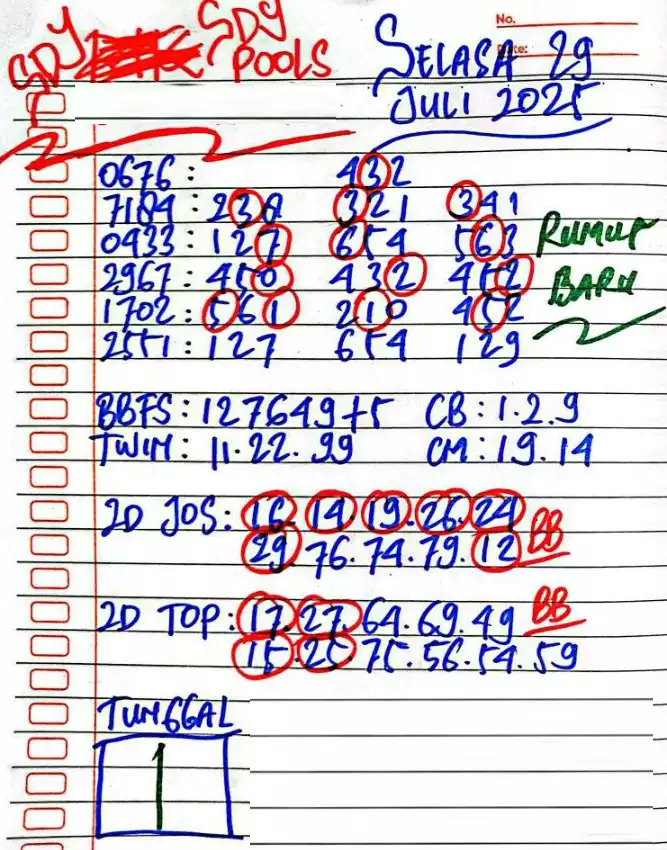 No.
Date:
SDY SDY
POOLS
SELASA 29
JULI 2025
0676 : 432
7184 : 238 321 341
0433 : 127 654 563
2967 : 450 432 452
1702 : 561 210 452
2551 : 127 654 129
RUMUS
BARU
BBFS : 127649+5 CB : 1.2.9
TWIN : 11.22.99 CM : 19.14
2D JOS : 16.14.19.26.24
29.76.74.79.12 BB
2D TOP : 17.27.64.69.49 BB
15.25.75.56.54.59
TUNGGAL
1